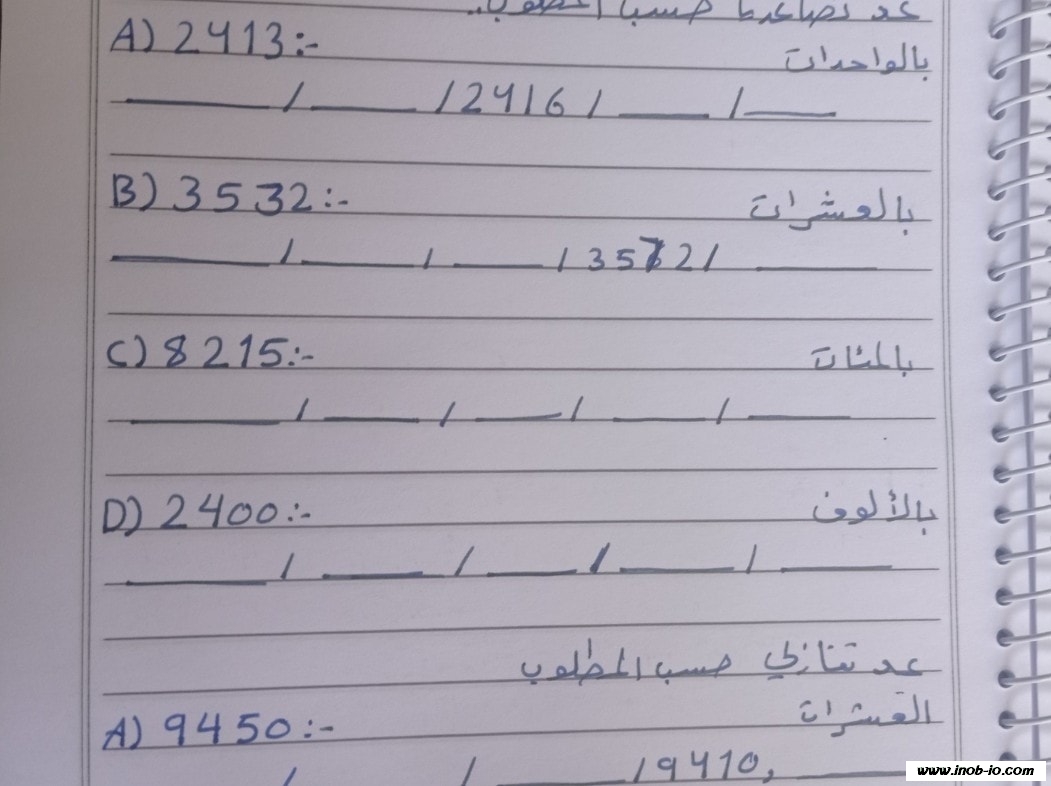 عد تصاعديا حسب المطلوب..
A) 2413:- بالواحدات
____ / ____ / 2416 / ____ / ____
B) 3532:- بالعشرات
____ / ____ / ____ / 3572 / ____
C) 8215:- بالمئات
____ / ____ / ____ / ____ / ____
D) 2400:- بالألوف
____ / ____ / ____ / ____ / ____
عد تنازلي حسب المطلوب
A) 9450:- العشرات
____ / ____ / ____ / 9410, ____
www.inob-io.com